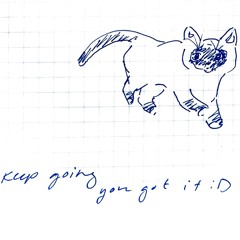 keep going
you got it :D